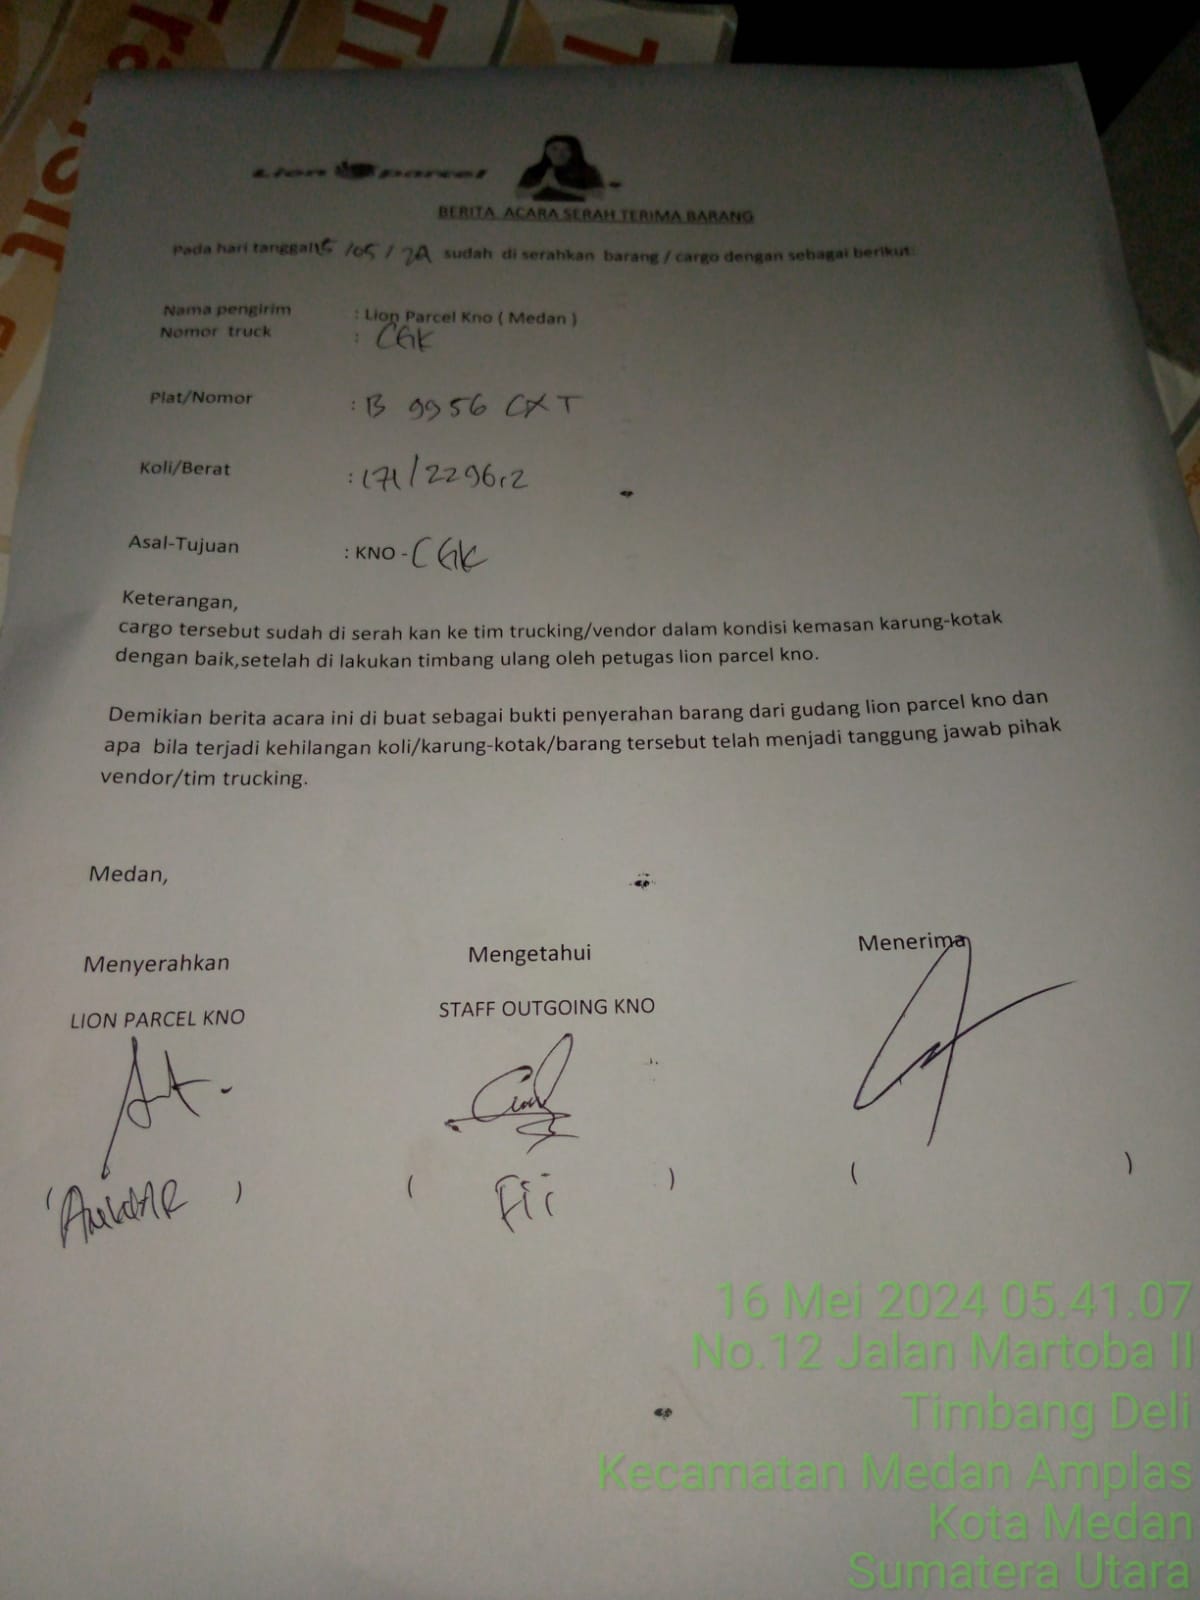 Lion parcel
BERITA ACARA SERAH TERIMA BARANG
Pada hari tanggal 15 /05 / 24 sudah di serahkan barang / cargo dengan sebagai berikut:
Nama pengirim : Lion Parcel Kno ( Medan )
Nomor truck : CGK
Plat/Nomor : B 9956 CXT
Koli/Berat : 171/2296,2
Asal-Tujuan : KNO - CGK
Keterangan,
cargo tersebut sudah di serah kan ke tim trucking/vendor dalam kondisi kemasan karung-kotak
dengan baik,setelah di lakukan timbang ulang oleh petugas lion parcel kno.
Demikian berita acara ini di buat sebagai bukti penyerahan barang dari gudang lion parcel kno dan
apa bila terjadi kehilangan koli/karung-kotak/barang tersebut telah menjadi tanggung jawab pihak
vendor/tim trucking.
Medan,
Menyerahkan Mengetahui Menerima
LION PARCEL KNO STAFF OUTGOING KNO
( ) ( ) ( )
16 Mei 2024 05.41.07
No.12 Jalan Martoba II
Timbang Deli
Kecamatan Medan Amplas
Kota Medan
Sumatera Utara